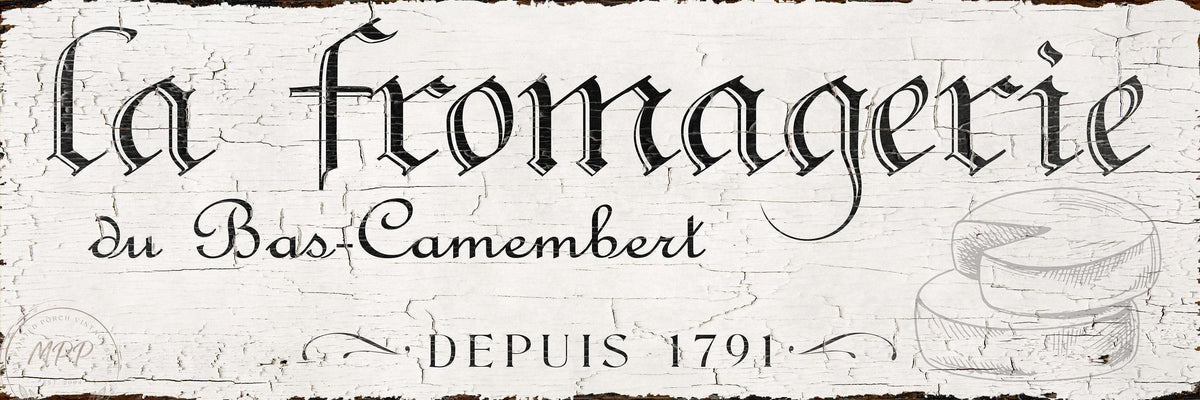 la fromagerie
du Bas-Camembert
DEPUIS 1791
MRP